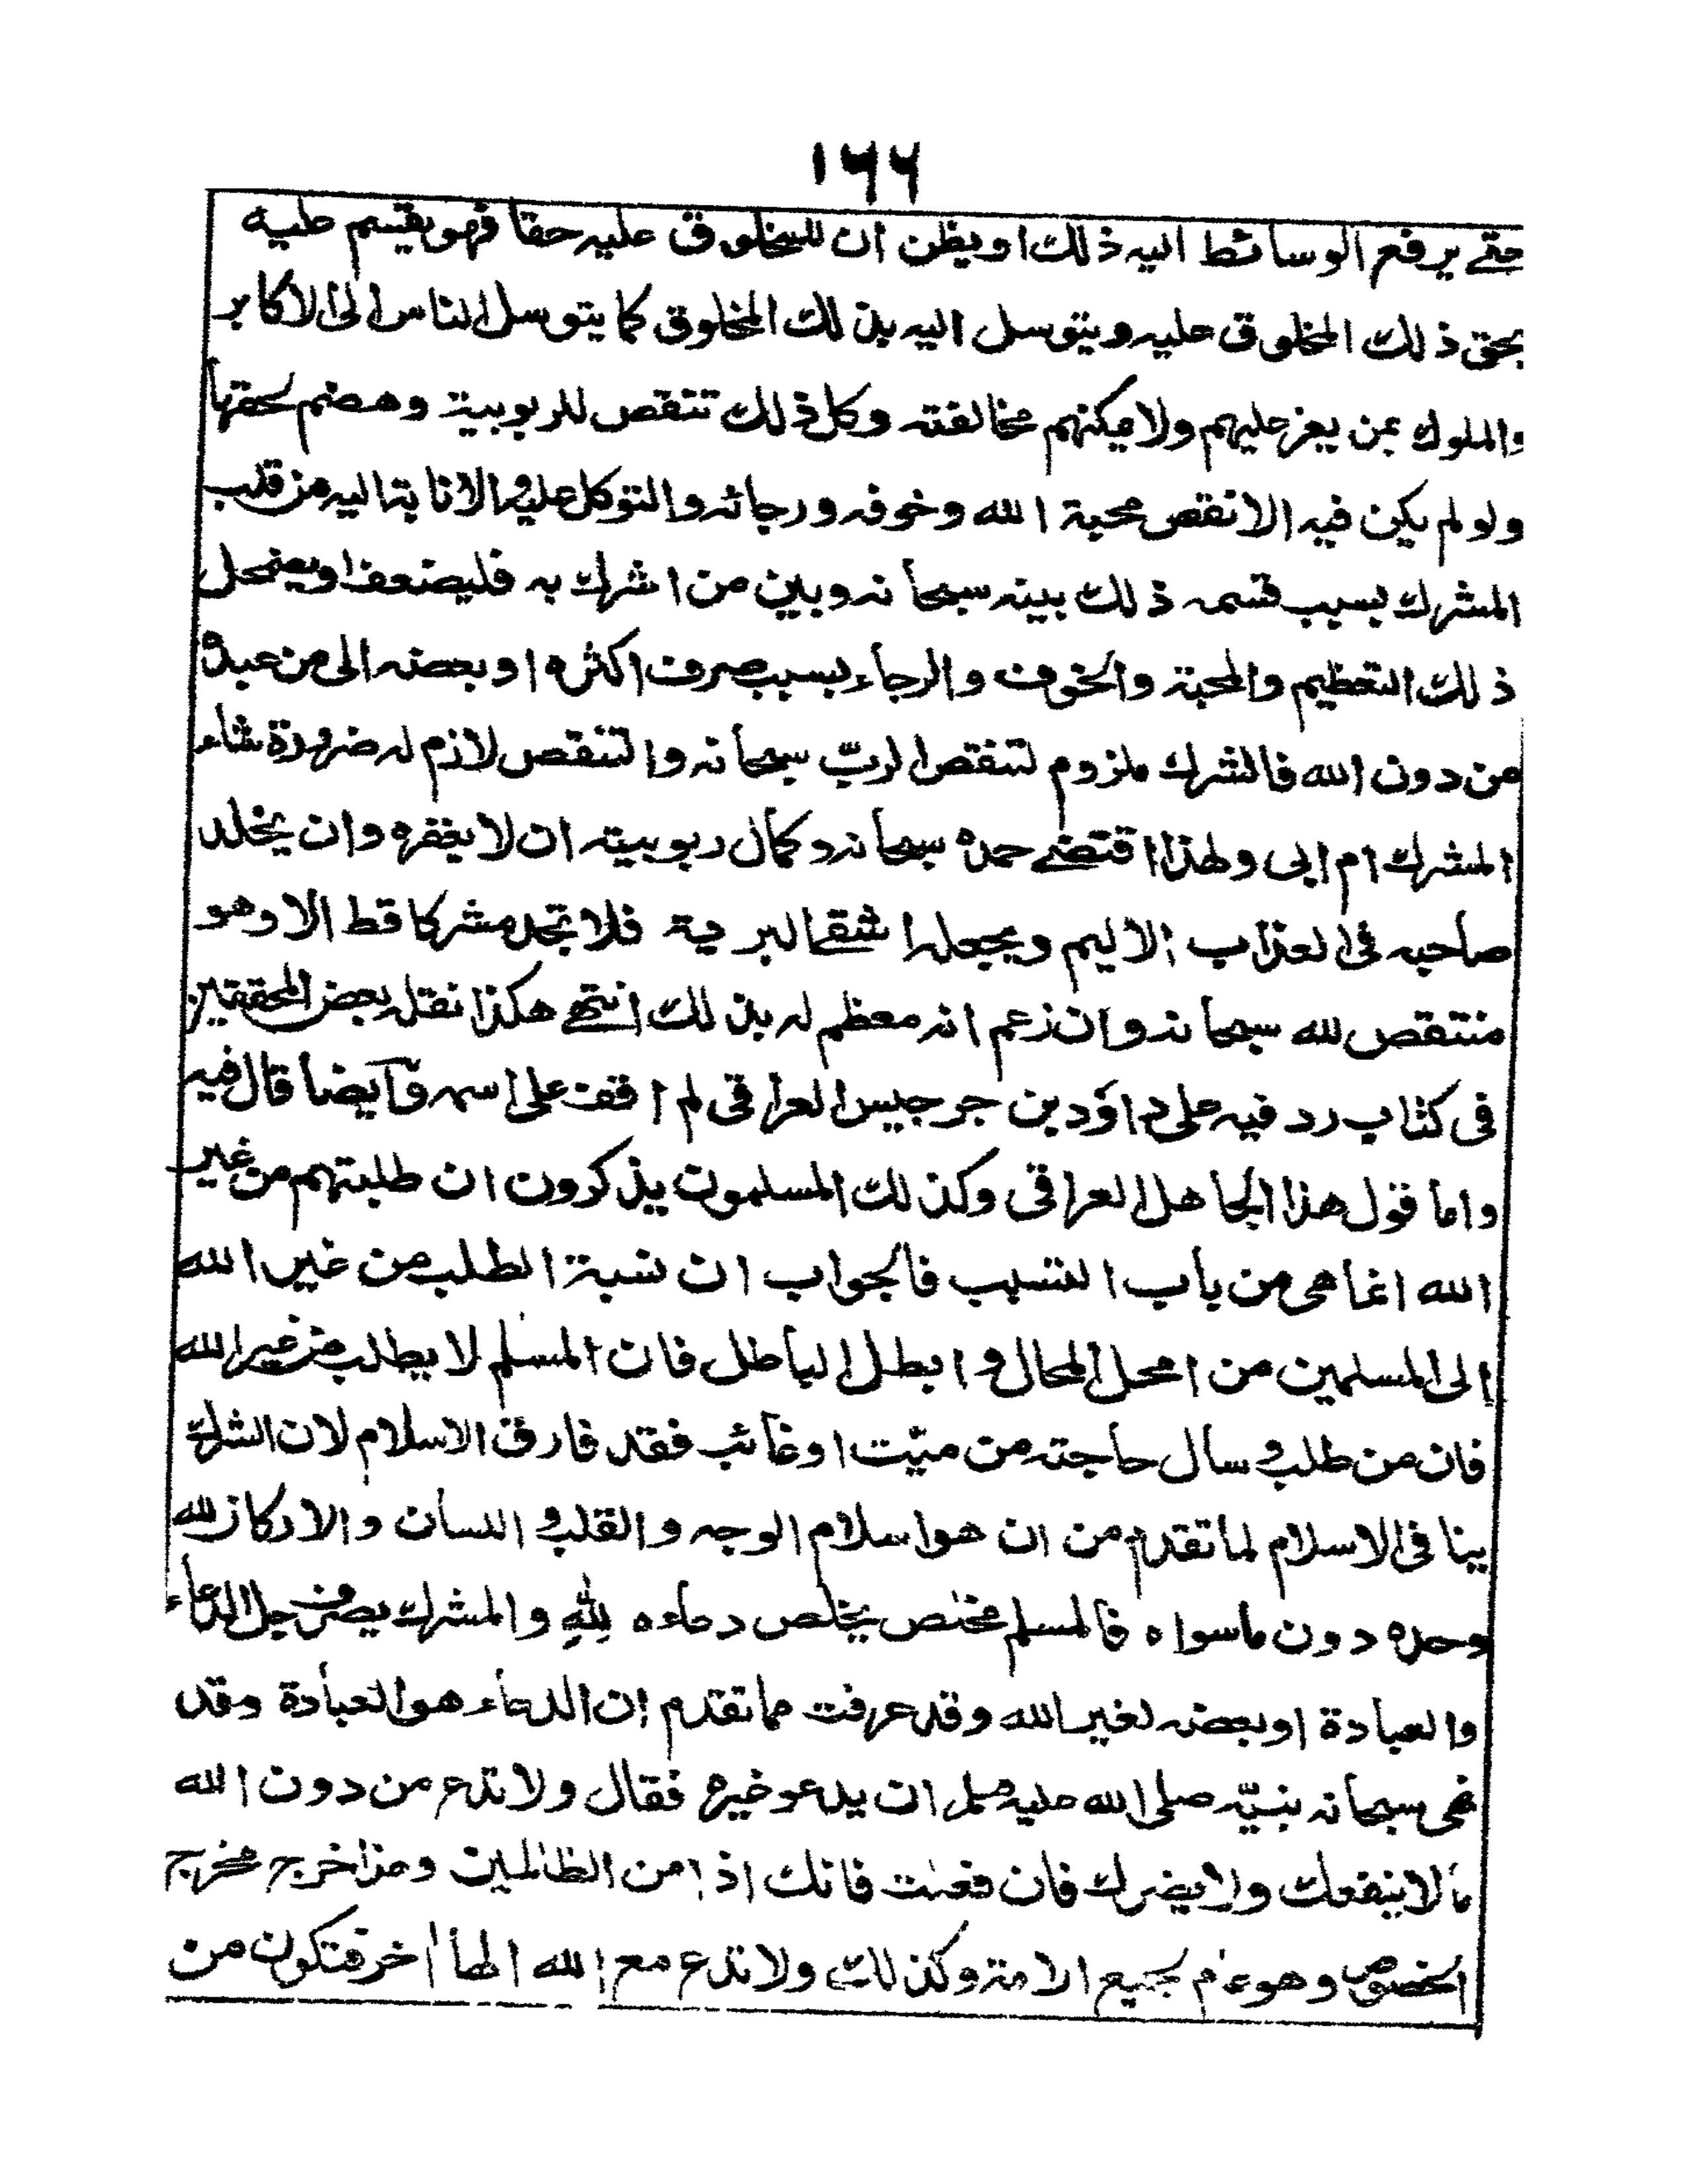 ١٦٦
حتے يرفع الوسائط اليه ذلك او يظن ان للمخلوق عليه حقا فهو يقسم عليه
بحق ذلك المخلوق عليه ويتوسل اليه بذلك المخلوق كما يتوسل الناس الى الاكابر
والملوك بمن يعز عليهم ولا يمكنهم مخالفته وكل ذلك تنقص للربوبية وهضم لحقها
ولو لم يكن فيه الا نقص محبة الله وخوفه ورجائه والتوكل عليه والانابة اليه من قلب
المشرك بسبب قسمه ذلك بينه سبحانه وبين من اشرك به فليضعف او يضمحل
ذلك التعظيم والمحبة والخوف والرجاء بسبب صرف اكثره او بعضه الى من عبدوه
من دون الله فالشرك ملزوم لتنقص الربّ سبحانه والتنقص لازم له ضرورة شاء
المشرك ام ابى ولهذا اقتضے حمده سبحانه وكمال ربوبيته ان لا يغفره وان يخلد
صاحبه فى العذاب الاليم ويجعله اشقے البرية فلا تجد مشركا قط الا وهو
منتقص لله سبحانه وان زعم انه معظم له بذلك انتهے هكذا نقل بعض المحققين
فى كتاب رد فيه على داؤد بن جرجيس العراقى لم اقف على اسمه وآيضا قال فيه
واما قول هذا الجاهل العراقى وكذلك المسلمون يذكرون ان طلبتهم من غير
الله انما هى من باب التسبب فالجواب ان نسبة الطلب من غير الله
الى المسلمين من امحل المحال و ابطل الباطل فان المسلم لا يطلب من غير الله
فان من طلب و سال حاجته من ميّت او غائب فقد فارق الاسلام لان الشرك
ينافى الاسلام لما تقدم من ان هو اسلام الوجه والقلب و اللسان والاركان لله
وحده دون ماسواه فالمسلم مخلص يخلص دعاءه لِلّٰهِ والمشرك يصرف جل الدعاء
والعبادة او بعضه لغير الله وقد عرفت مما تقدم ان الدعاء هو العبادة وقد
نهى سبحانه نبيّه صلى الله عليه وسلم ان يدعو غيره فقال ولا تدع من دون الله
مالا ينفعك ولا يضرك فان فعلت فانك اذا من الظالمين وهذا خرج مخرج
الخصوص وهو عام لجميع الامة وكذلك ولا تدع مع الله الها اخر فتكون من